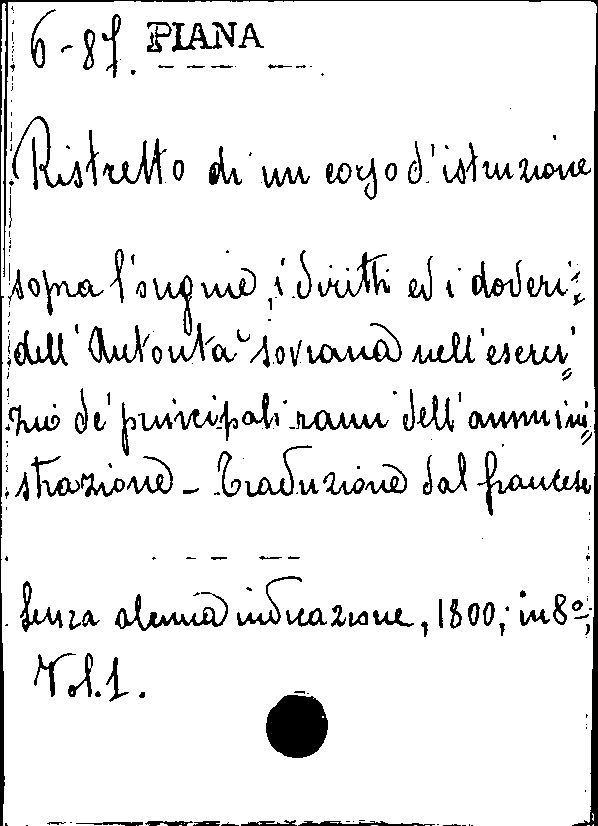 6-87. PIANA
Ristretto di un corso d'istruzione
sopra l'origine, i diritti ed i doveri
dell'Autorità sovrana nell'eserci=
zio de' principali rami dell'ammini=
strazione - Traduzione dal francese
Senza alcuna indicazione, 1800; in 8º,
Vol. 1.